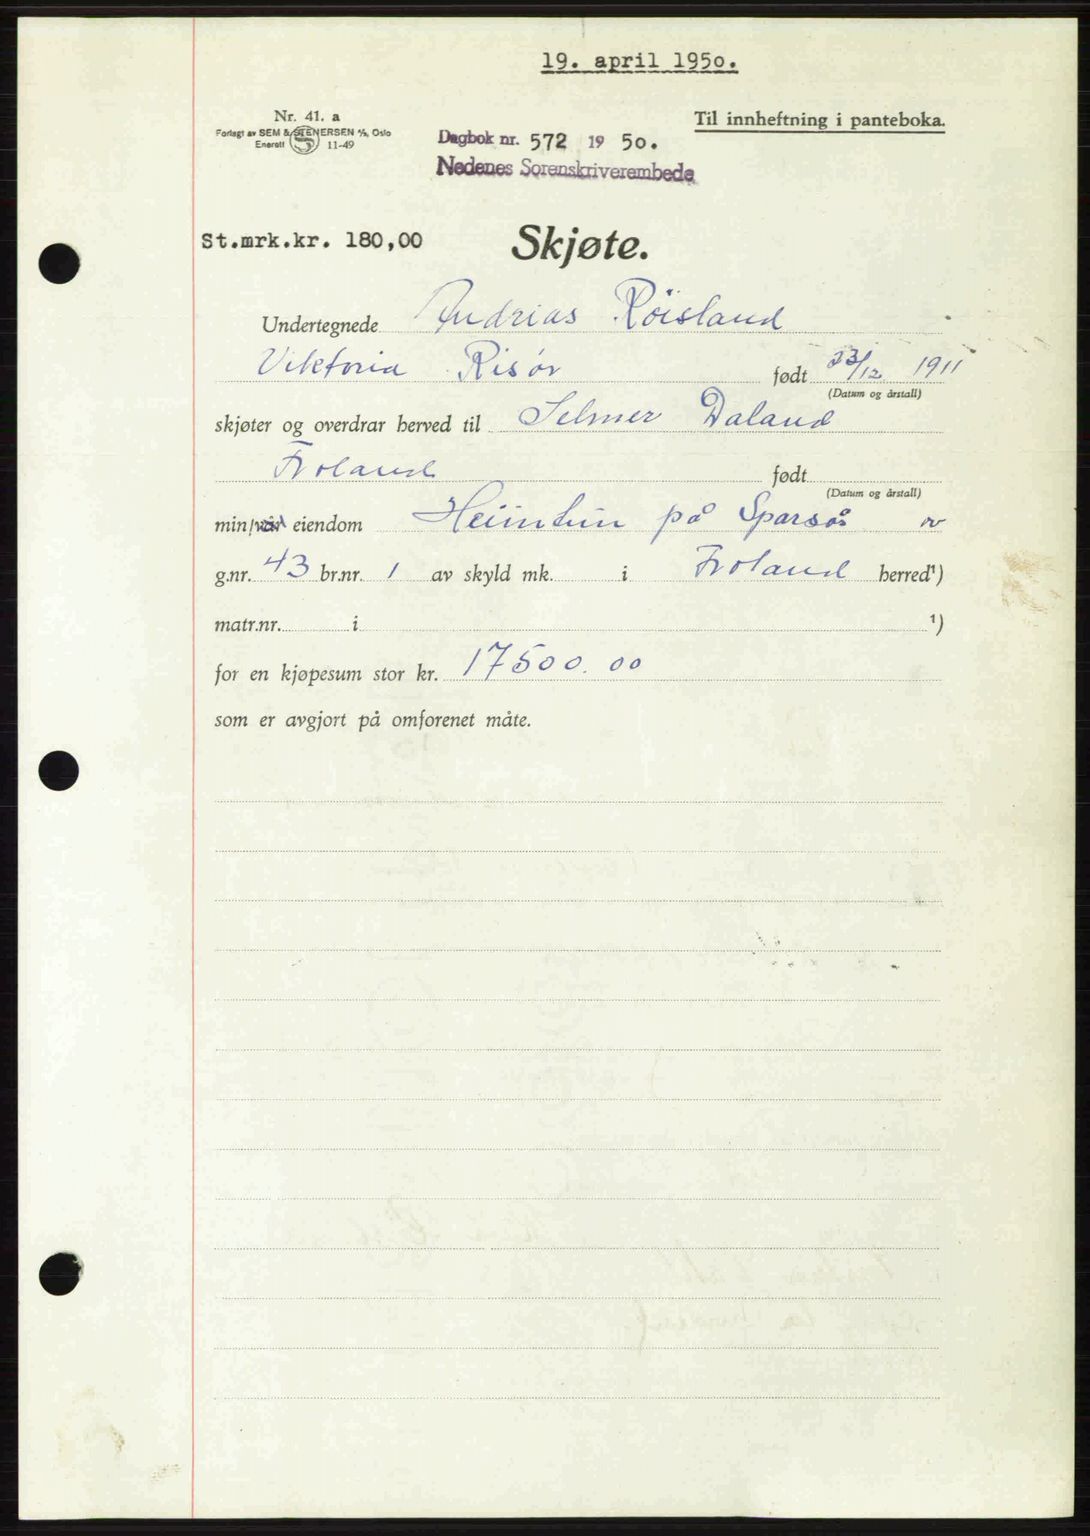 19. april 1950.
Nr. 41. a
Forlagt av SEM & STENERSEN A/S, Oslo
Enerett 11-49
Til innheftning i panteboka.
Dagbok nr. 572 19 50.
Nedenes Sorenskriverembede
St.mrk.kr. 180,00
Skjøte.
Undertegnede Andrias Röisland
Viktoria Risør født 23/12 1911
(Datum og årstall)
skjøter og overdrar herved til Selmer Daland
Froland født
(Datum og årstall)
min/vår eiendom Heimtun på Sparsås av
g.nr. 43 br.nr. 1 av skyld mk. i Froland herred¹)
matr.nr. i ¹)
for en kjøpesum stor kr. 17500.00
som er avgjort på omforenet måte.